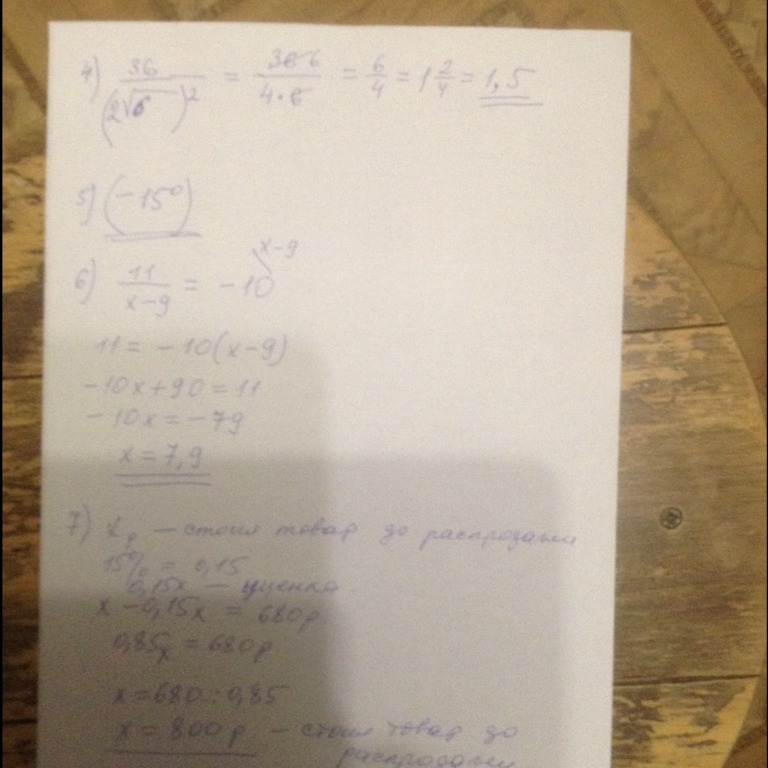 4) 36/(2√6)² = 36 6/4·6 = 6/4 = 1 2/4 = 1,5
5) (-15°)
x-9
6) 11/x-9 = -10
11 = -10(x-9)
-10x+90=11
-10x=-79
x=7,9
7) x р — стоил товар до распродажи
15% = 0,15
0,15x — уценка
x-0,15x = 680р.
0,85x = 680р.
x=680:0,85
x=800р - стоил товар до
распродажи